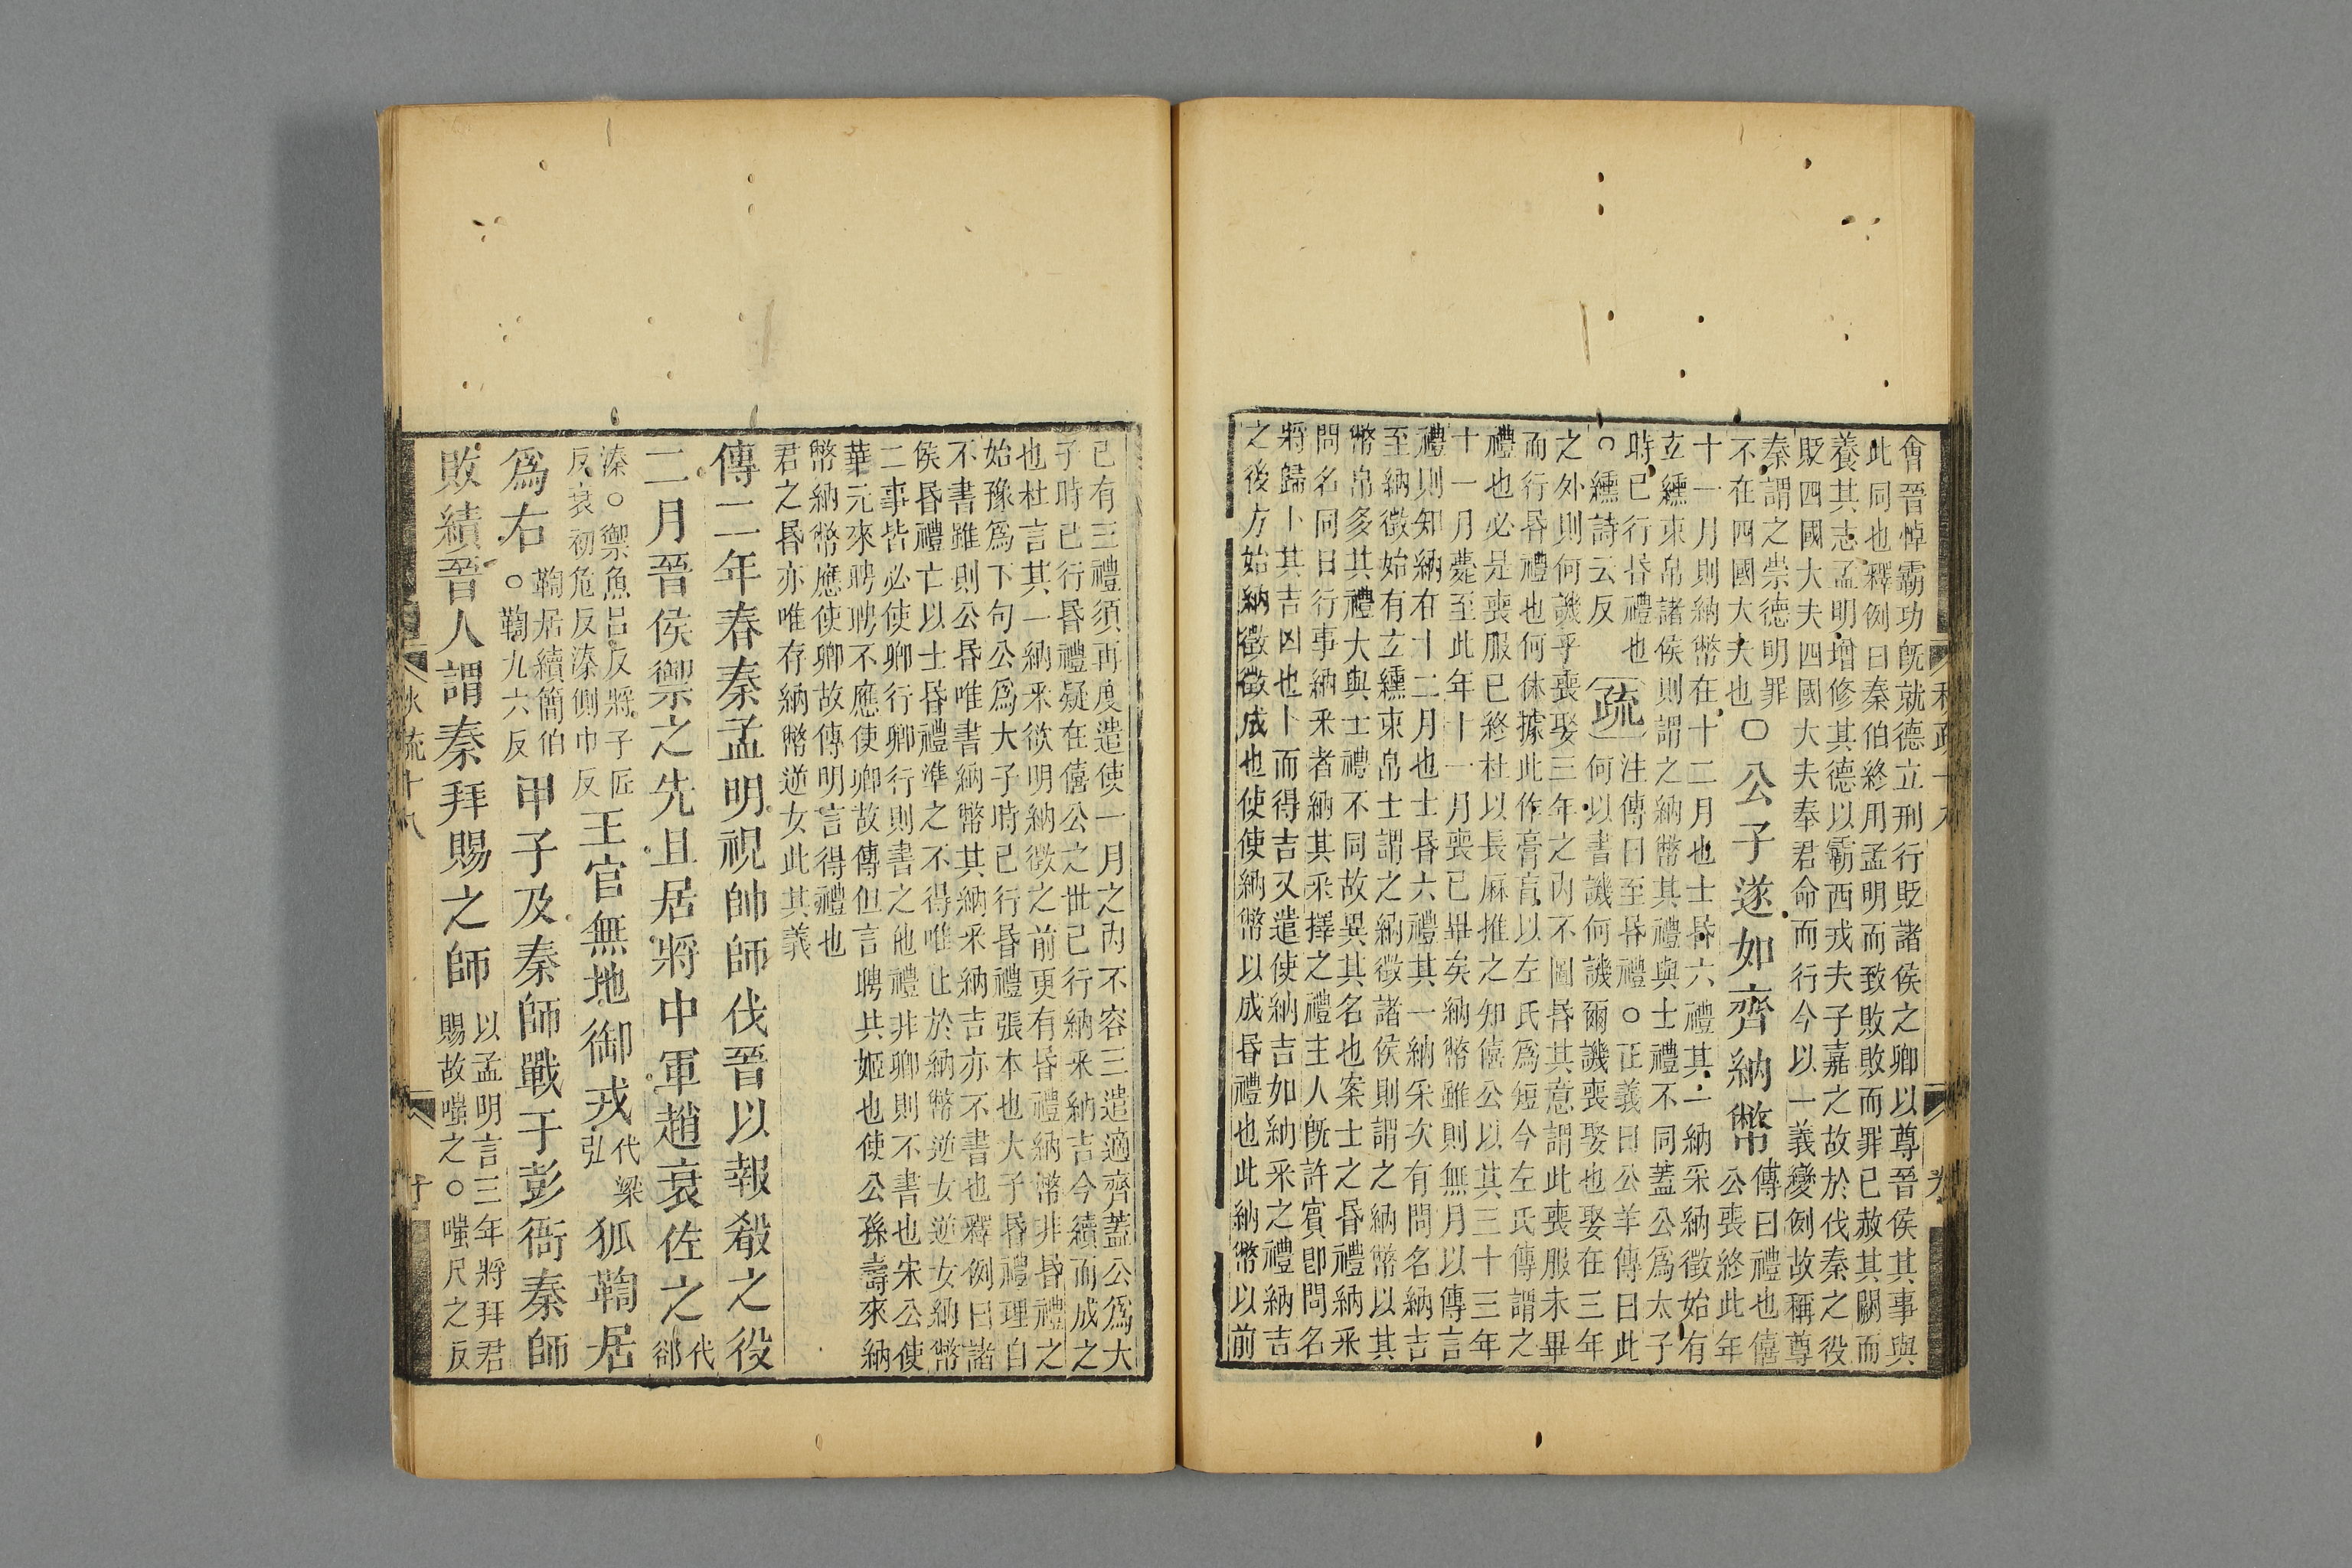 會晉悼霸功旣就德立刑行貶諸侯之卿以尊晉侯其事與
此同也釋例曰秦伯終用孟明而致敗敗而罪已赦其闕而
養其志孟明增修其德以霸西戎夫子嘉之故於伐秦之役
貶四國大夫四國大夫奉君命而行今以一義變例故稱尊
秦謂之崇德明罪
不在四國大夫也
○公子遂如齊納幣
傳曰禮也僖
公喪終此年
十一月則納幣在十二月也士昏六禮其一納采納徵始有
立纁束帛諸侯則謂之納幣其禮與士禮不同蓋公爲太子
時已行昏禮也
○纁詩云反
疏
注傳曰至昏禮○正義曰公羊傳曰此
何以書譏何譏爾譏喪娶也娶在三年
之外則何譏乎喪娶三年之內不圖昏其意謂此喪服未畢
而行昏禮也何休據此作膏肓以左氏爲短今左氏傳謂之
禮也必是喪服已終杜以長麻推之知僖公以其三十三年
十一月薨至此年十一月喪已畢矣納幣雖則無月以傳言
禮則知納在十二月也士昏六禮其一納采次有問名納吉
至納徵始有立纁束帛士謂之納徵諸侯則謂之納幣以其
幣帛多其禮大與士禮不同故異其名也案士之昏禮納采
問名同日行事納采者納其采擇之禮主人旣許賓卽問名
將歸卜其吉凶也卜而得吉又遣使納吉如納采之禮納吉
之後方始納徵徵成也使使納幣以成昏禮也此納幣以前
已有三禮須再度遣使一月之內不容三遣適齊蓋公爲大
子時已行昏禮疑在僖公之世已行納采納吉今續而成之
也杜言其一納采欲明納徵之前更有昏禮納幣非昏禮之
始豫爲下句公爲大子時已行昏禮張本也大子昏禮理自
不書雖則公昏唯書納幣其納采納吉亦不書也釋例曰諸
侯昏禮亡以士昏禮準之不得唯止於納幣逆女逆女納幣
二事皆必使卿行卿行則書之他禮非卿則不書也宋公使
華元來聘聘不應使卿故傳但言聘共姬也使公孫壽來納
幣納幣應使卿故傳明言得禮也
君之昏亦唯存納幣逆女此其義
傳二年春秦孟明視帥師伐晉以報殽之役
二月晉侯禦之先且居將中軍趙衰佐之
代
郤
溱○禦魚呂反將子匠
反衰初危反溱側巾反
王官無地御戎
代梁
弘
狐鞫居
爲右
鞫居續簡伯
○鞫九六反
甲子及秦師戰于彭衙秦師
敗績晉人謂秦拜賜之師
以孟明言三年將拜君
賜故嗤之○嗤尺之反
秋疏十八
十